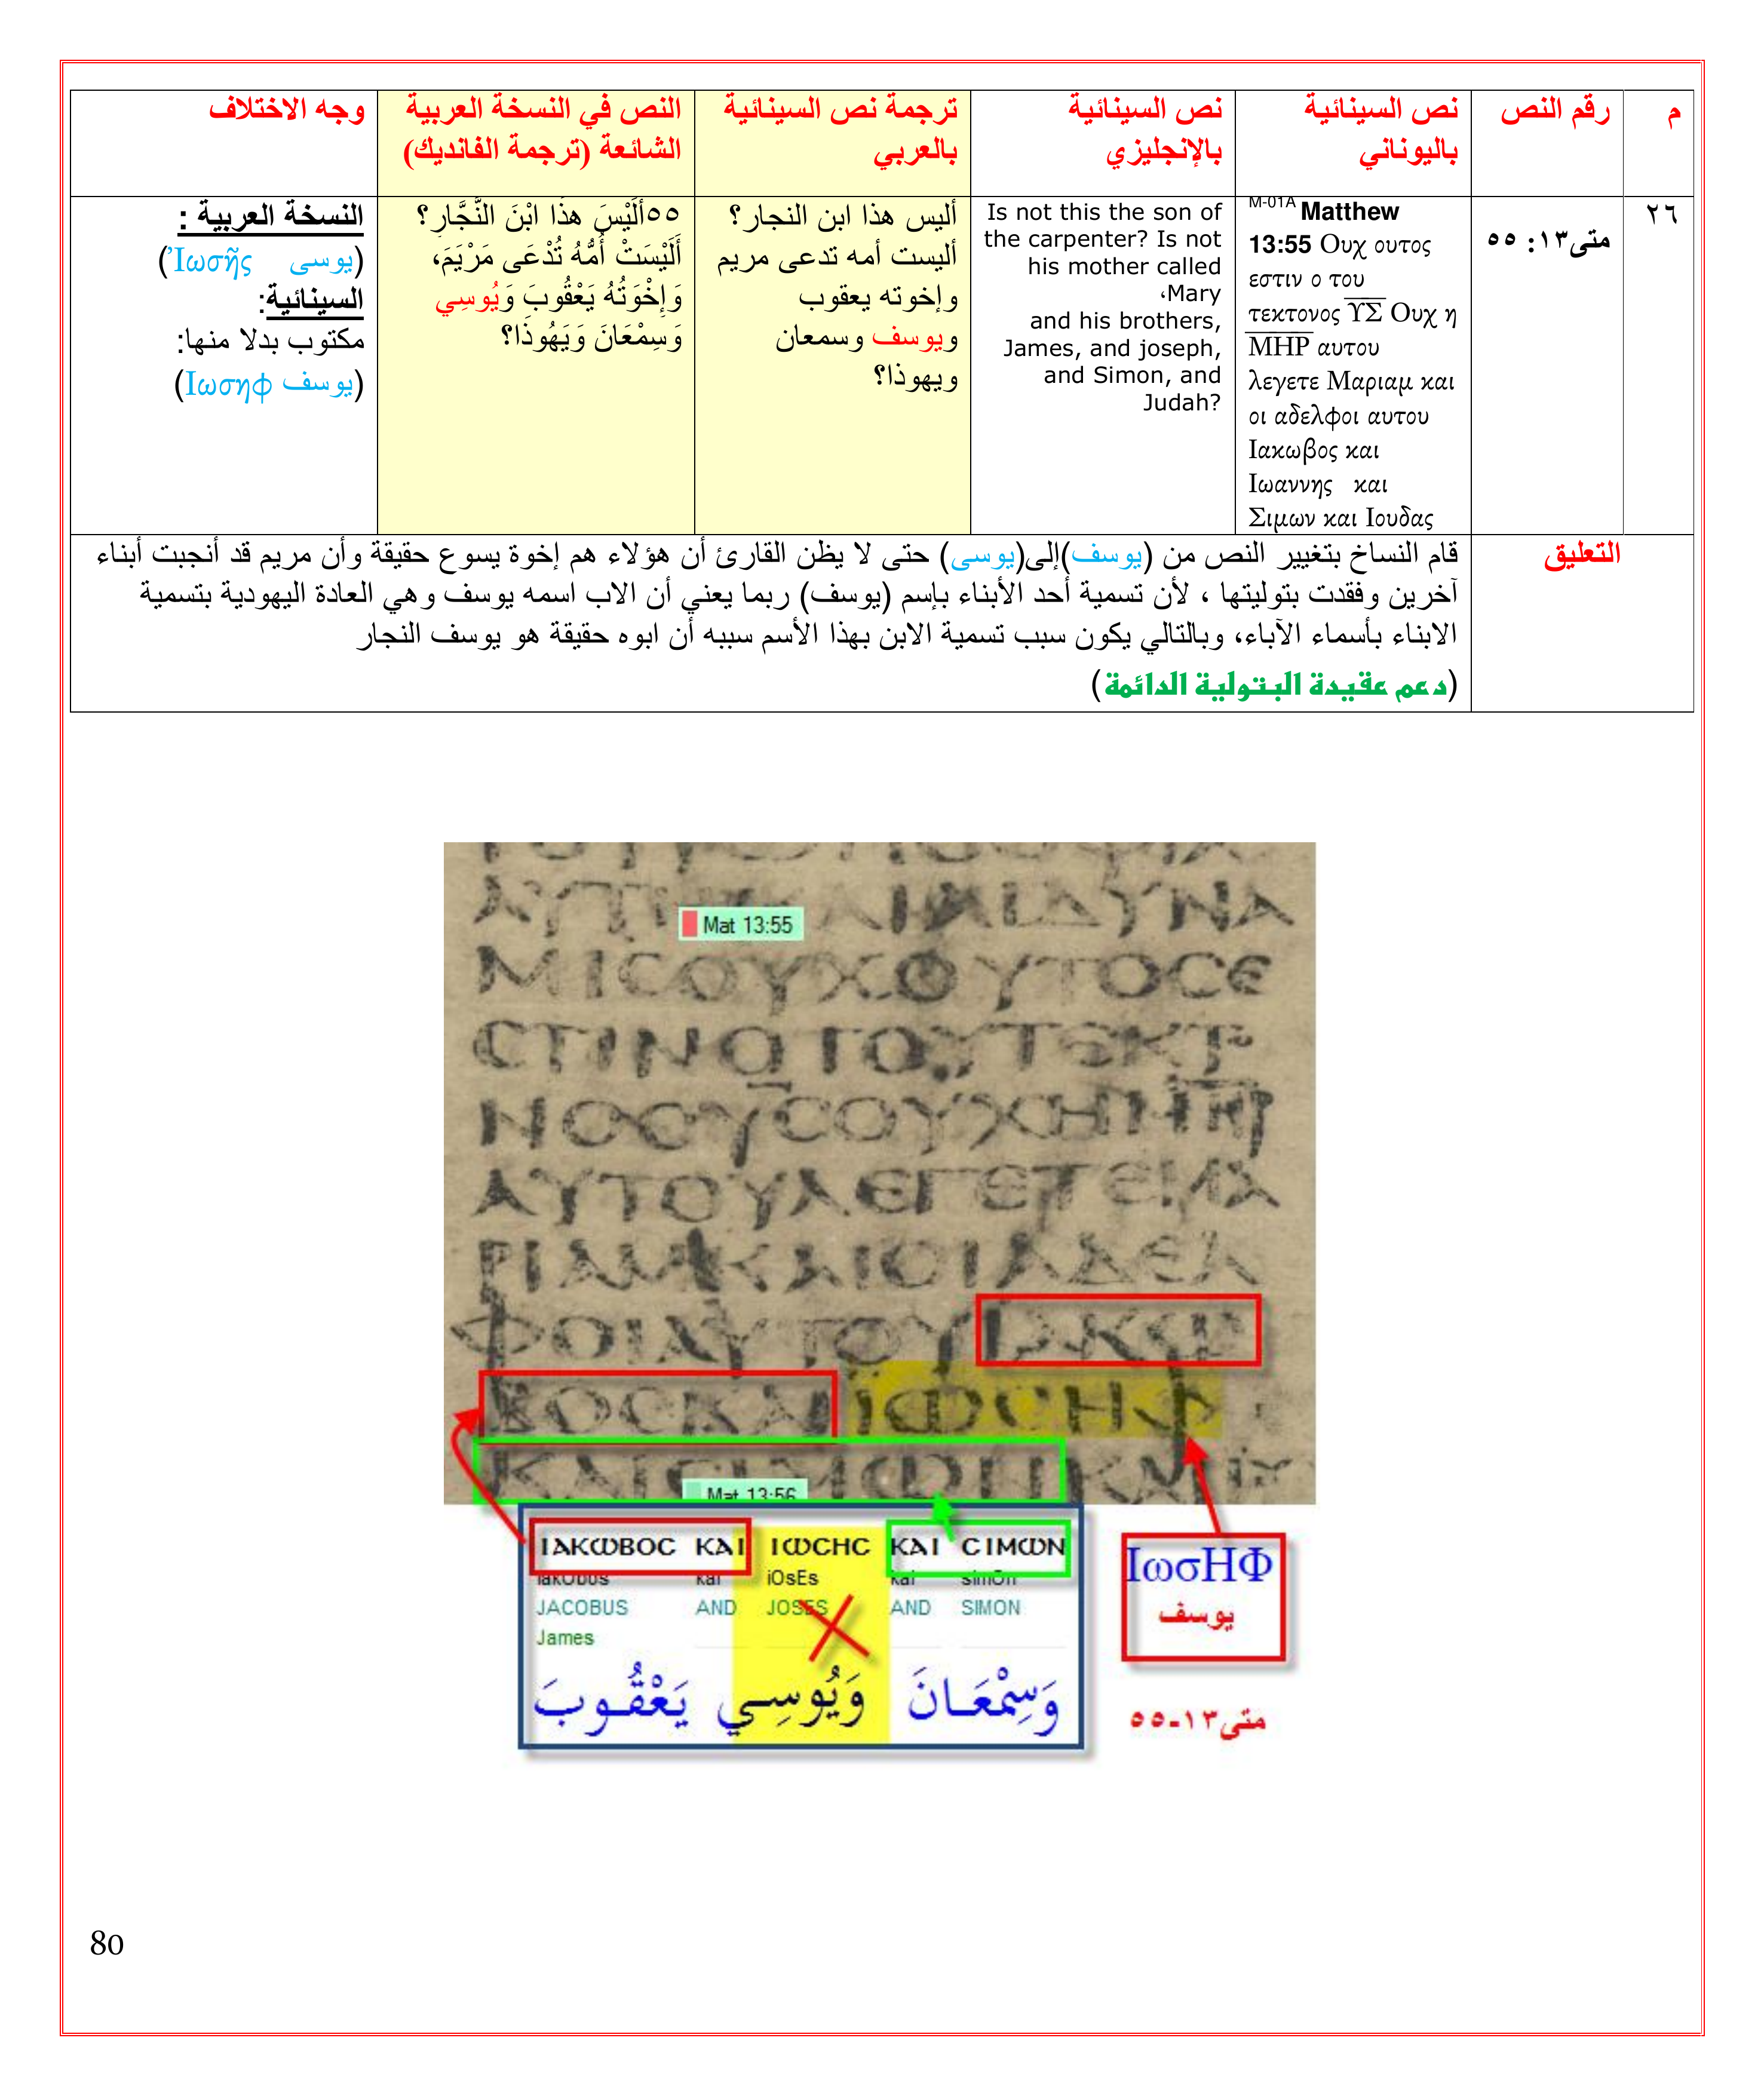 م
رقم النص
نص السينائية
باليوناني
نص السينائية
بالإنجليزي
ترجمة نص السينائية
بالعربي
النص في النسخة العربية
الشائعة (ترجمة الفانديك)
وجه الاختلاف
٢٦
متى١٣: ٥٥
M-01A Matthew
13:55 Ουχ ουτος
εστιν ο του
τεκτονος ΥΣ Ουχ η
ΜΗΡ αυτου
λεγετε Μαριαμ και
οι αδελφοι αυτου
Ιακωβος και
Ιωαννης και
Σιμων και Ιουδας
Is not this the son of
the carpenter? Is not
his mother called
Mary،
and his brothers,
James, and joseph,
and Simon, and
Judah?
أليس هذا ابن النجار؟
أليست أمه تدعى مريم
وإخوته يعقوب
ويوسف وسمعان
ويهوذا؟
٥٥أَلَيْسَ هذَا ابْنَ النَّجَّارِ؟
أَلَيْسَتْ أُمُّهُ تُدْعَى مَرْيَمَ،
وَإِخْوَتُهُ يَعْقُوبَ وَيُوسِي
وَسِمْعَانَ وَيَهُوذَا؟
النسخة العربية :
(يوسى Ἰωσῆς)
السينائية:
مكتوب بدلا منها:
(يوسف Ιωσηφ)
التعليق
قام النساخ بتغيير النص من (يوسف)إلى(يوسى) حتى لا يظن القارئ أن هؤلاء هم إخوة يسوع حقيقة وأن مريم قد أنجبت أبناء
آخرين وفقدت بتوليتها ، لأن تسمية أحد الأبناء بإسم (يوسف) ربما يعني أن الاب اسمه يوسف وهي العادة اليهودية بتسمية
الابناء بأسماء الآباء، وبالتالي يكون سبب تسمية الابن بهذا الأسم سببه أن ابوه حقيقة هو يوسف النجار
(دعم عقيدة البتولية الدائمة)
Mat 13:55
ΜΙCΟΥΧΟΥΤΟCΕ
CΤΙΝΟΤΟΥΤΕΚΤ
ΝΟCΥCΟΥΧΗΜΗΡ
ΑΥΤΟΥΛΕΓΕΤΕΜΑ
ΡΙΑΜΚΑΙΟΙΑΔΕΛ
ΦΟΙΑΥΤΟΥΙΑΚΩ
ΒΟCΚΑΙΙΩCΗΦ
ΚΑΙCΙΜΩΝΚΑΙΙΟΥ
Mat 13:56
ΙΑΚΩΒΟC ΚΑΙ ΙΩCΗC ΚΑΙ CΙΜΩΝ
iakObos kai iOsEs kai simOn
JACOBUS AND JOSES AND SIMON
James
يَعْقُوبَ وَيُوسِي وَسِمْعَانَ
ΙωσΗΦ
يوسف
متى١٣-٥٥
80